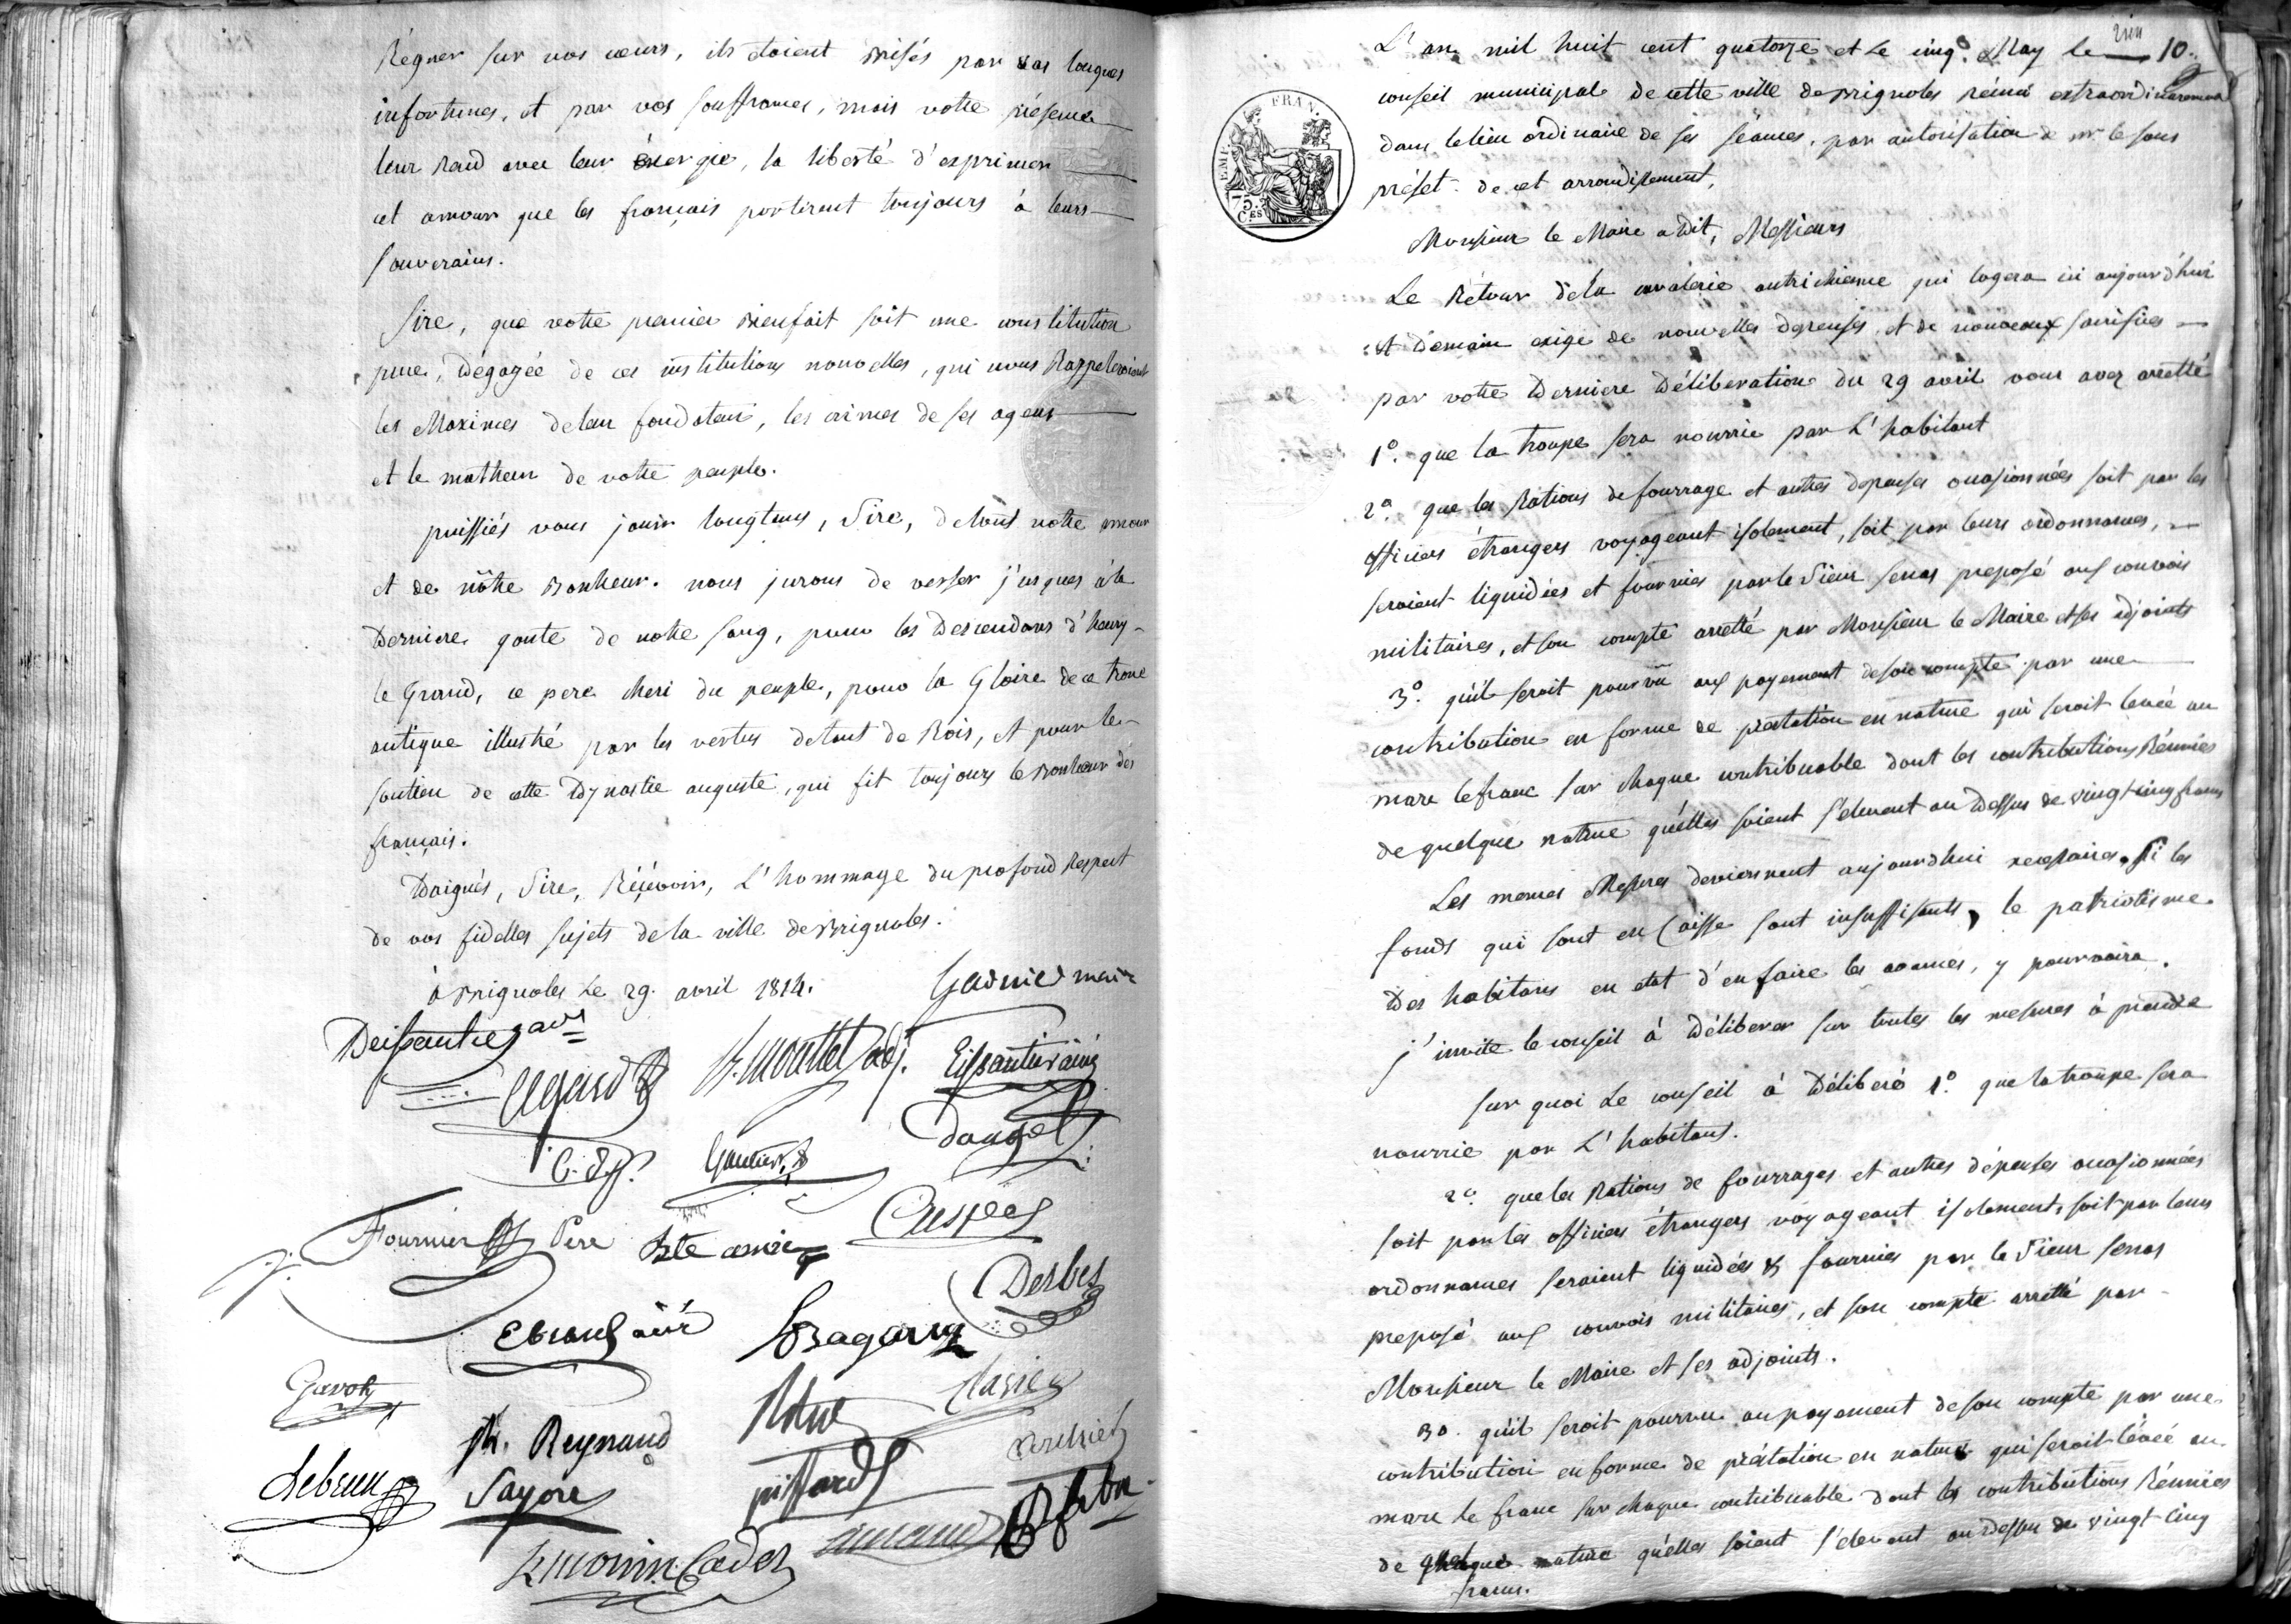 Régner sur vos cœurs, ils étoient brisés par vos longues
infortunes, et par vos souffrances, mais votre présence
leur rend avec leur énergie, la liberté d'exprimer
cet amour que les français portèrent toujours à leurs
souverains.
Sire, que votre premier bienfait soit une constitution
pure, dégagée de ces institutions nouvelles, qui nous Rappeleroient
les Maximes de leur fondateur, les crimes de ses agens
et le malheur de votre peuple.
puissiés vous jouir longtems, Sire, de tout notre amour
et de nôtre bonheur. nous jurons de verser j'usques à la
Derniere goute de notre sang, pour les Descendans d'henry
le Grand, ce pere cheri du peuple, pour la Gloire de ce trone
antique illustré par les vertus de tant de Rois, et pour le
soutien de cette Dynastie auguste, qui fit toujours le bonheur des
français.
Daignés, Sire, Réçevoir, L'hommage du profond Respect
de vos fidelles sujets de la ville de Brignoles.
à Brignoles Le 29. avril 1814.
Garnier maire
Gautier
Fournier Père
Crespin
Derbes
Gavoty
Reynaud
Lebrun
Sayou
piffard
amand
L'an mil huit cent quatorze et Le cinq May le 10.
conseil municipal de cette ville de Brignoles réuni extraordinairement
dans le lieu ordinaire de ses séances, par autorisation de mr le sous
préfet de cet arrondissement,
EMP. FRAN.
75. C.ES
Monsieur le Maire a dit, Messieurs
Le Rétour de la cavalerie autrichienne qui logera ici aujourd'hui
et Demain exige de nouvelles depenses et de nouveaux sacrifices
par votre Derniere Déliberation du 29 avril vous avez arretté
1º. que la troupe sera nourrie par L'habitant
2º. que les Rations de fourrage et autres depenses occasionnées soit par les
officiers étrangers voyageant isolement, soit par leurs ordonnances,
seroient liquidées et fournies par le Sieur senas preposé aux convois
militaires, et son compte arretté par Monsieur le Maire et ses adjoints
3º. qu'il seroit pourvû aux payement de son compte par une
contribution en forme de prestation en nature qui seroit levée au
marc le franc sur chaque contribuable dont les contributions Réunies
de quelque nature qu'elles soient s'elevent au Dessus de vingt cinq francs
Les memes Mesures deviennent aujourdhui necessaires. Si les
fonds qui sont en Caisse sont insuffisants, le patriotisme
Des habitans en etat d'en faire les avances, y pourvoira.
j'invite le conseil à Déliberer sur toutes les mesures à prendre
sur quoi Le conseil à Déliberé 1º. que la troupe sera
nourrie par L'habitant.
2º. que les Rations de fourrages et autres dépenses occasionnées
soit par les officiers étrangers voyageant isolement, soit par leurs
ordonnances seroient liquidées & fournies par le Sieur senas
preposé aux convois militaires, et son compte arretté par
Monsieur le Maire et ses adjoints.
3º. qu'il seroit pourvu au payement de son compte par une
contribution en forme de préstation en nature qui seroit lévée au
marc le franc sur chaque contribuable dont les contributions Réunies
de quelque nature qu'elles soient s'elevent au Dessus de vingt cinq
francs.